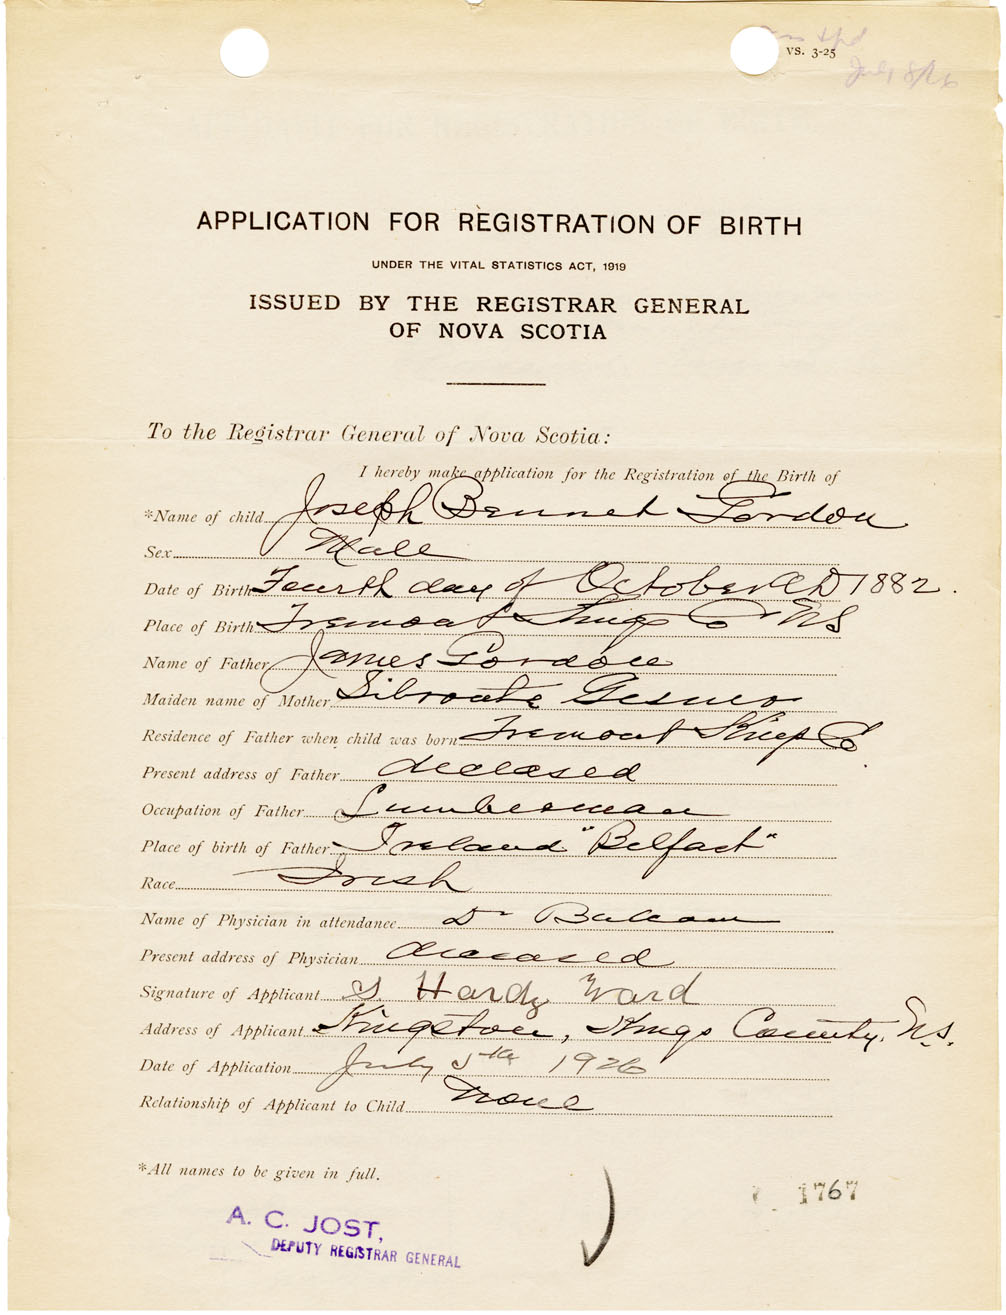 VS. 3-25
July 8/26
APPLICATION FOR REGISTRATION OF BIRTH
UNDER THE VITAL STATISTICS ACT, 1919
ISSUED BY THE REGISTRAR GENERAL
OF NOVA SCOTIA
To the Registrar General of Nova Scotia:
I hereby make application for the Registration of the Birth of
*Name of child Joseph Bennet Gordon
Sex Male
Date of Birth Fourth day of October AD 1882.
Place of Birth Tremont Kings Co NS
Name of Father James Gordon
Maiden name of Mother
Residence of Father when child was born Tremont Kings Co
Present address of Father deceased
Occupation of Father Lumberman
Place of birth of Father Ireland "Belfast"
Race Irish
Name of Physician in attendance Dr Balcom
Present address of Physician deceased
Signature of Applicant S. Hardy Ward
Address of Applicant Kingston, Kings County. N.S.
Date of Application July 5th 1926
Relationship of Applicant to Child None
*All names to be given in full.
1767
A. C. JOST,
DEPUTY REGISTRAR GENERAL